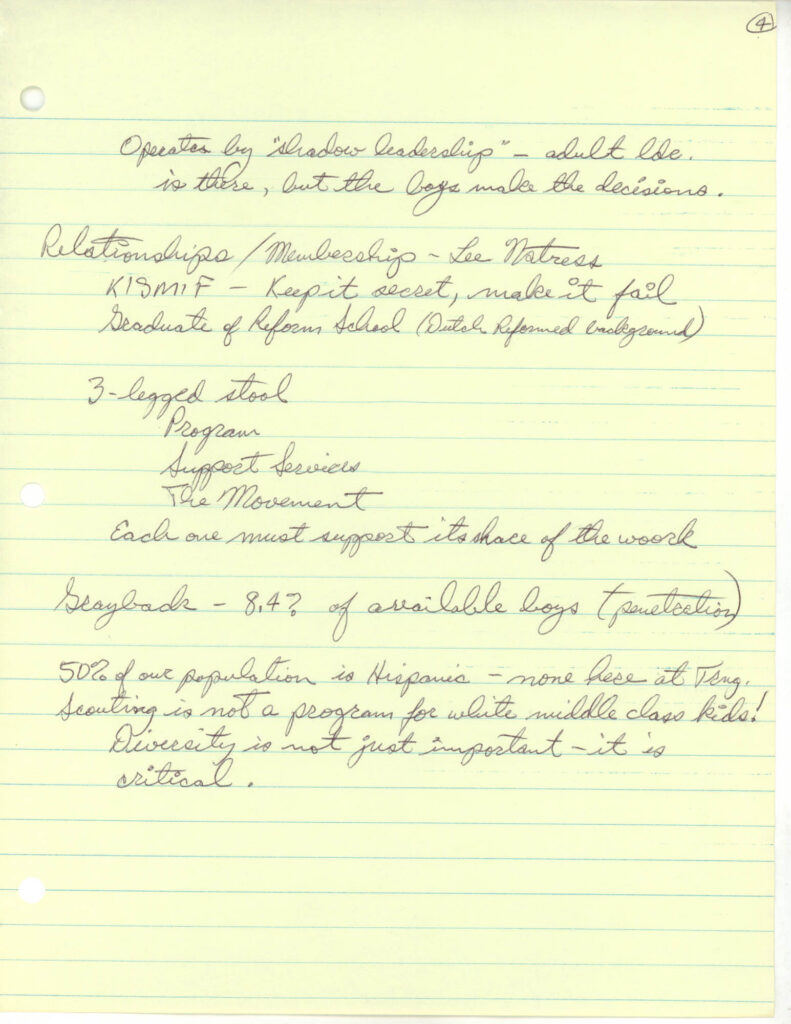 4
Operates by "shadow leadership" - adult ldr.
is there, but the boys make the decisions.
Relationships / Membership - Lee Natress
KISMIF - Keep it secret, make it fail
Graduate of Reform School (Dutch Reformed background)
3-legged stool
Program
Support Services
The Movement
Each one must support its share of the woork
Grayback - 8.4? of available boys (penetration)
50% of our population is Hispanic - none here at Trng.
Scouting is not a program for white middle class kids!
Diversity is not just important - it is
critical.